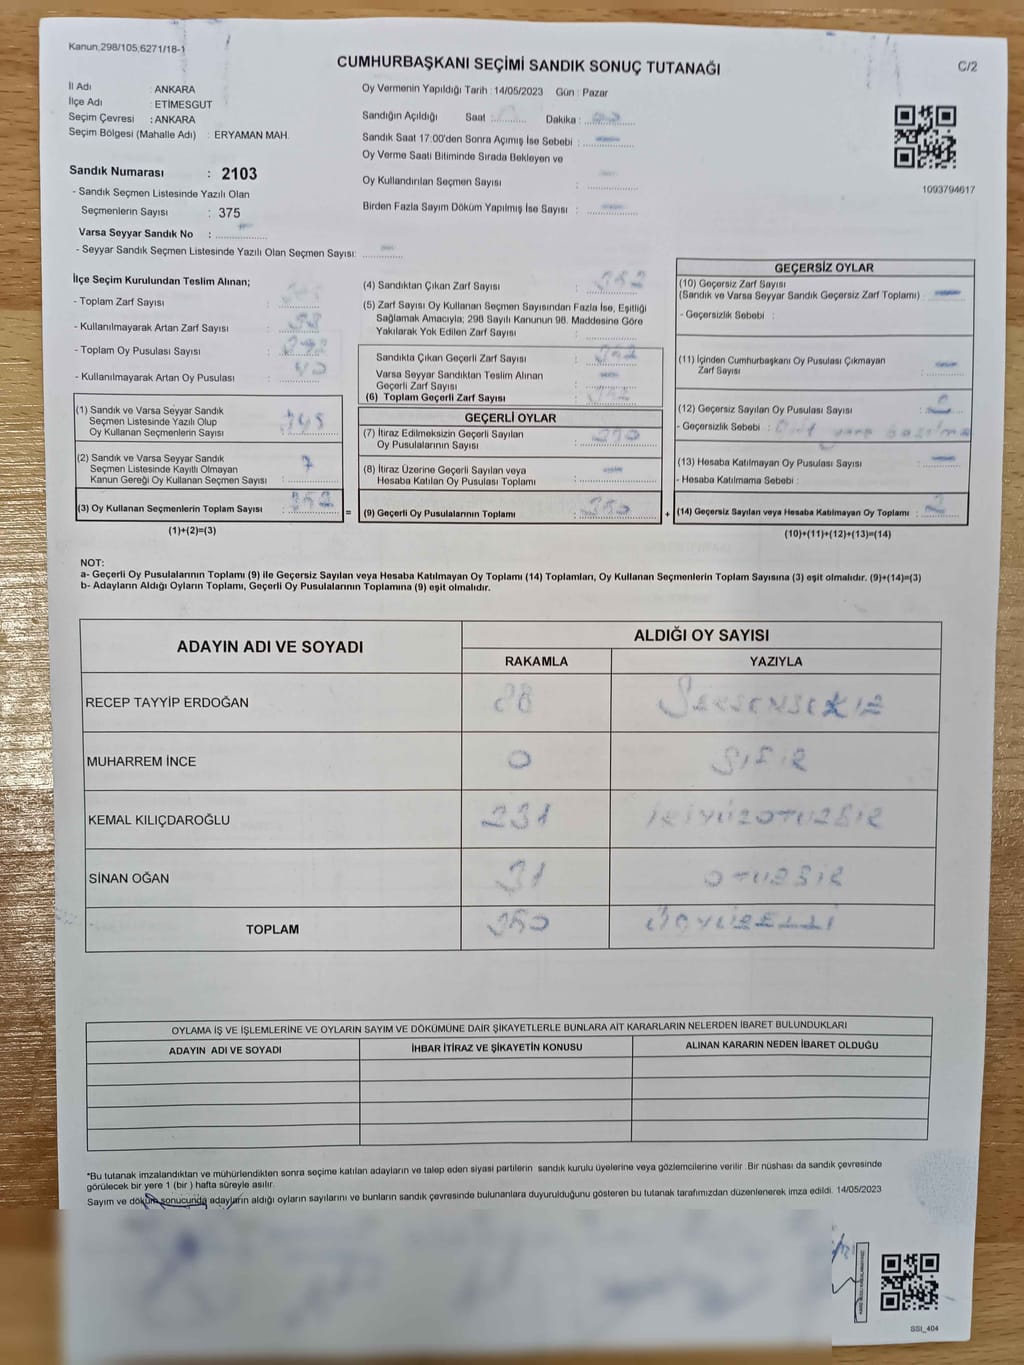 Kanun,298/105,6271/18-1
CUMHURBAŞKANI SEÇİMİ SANDIK SONUÇ TUTANAĞI
C/2
İl Adı : ANKARA
İlçe Adı : ETİMESGUT
Seçim Çevresi : ANKARA
Seçim Bölgesi (Mahalle Adı) : ERYAMAN MAH.
Oy Vermenin Yapıldığı Tarih : 14/05/2023 Gün : Pazar
Sandığın Açıldığı Saat : Dakika :
Sandık Saat 17:00'den Sonra Açımış İse Sebebi :
Oy Verme Saati Bitiminde Sırada Bekleyen ve
Oy Kullandırılan Seçmen Sayısı :
Birden Fazla Sayım Döküm Yapılmış İse Sayısı :
1093794617
Sandık Numarası : 2103
- Sandık Seçmen Listesinde Yazılı Olan
Seçmenlerin Sayısı : 375
Varsa Seyyar Sandık No :
- Seyyar Sandık Seçmen Listesinde Yazılı Olan Seçmen Sayısı:
İlçe Seçim Kurulundan Teslim Alınan;
- Toplam Zarf Sayısı :
- Kullanılmayarak Artan Zarf Sayısı :
- Toplam Oy Pusulası Sayısı :
- Kullanılmayarak Artan Oy Pusulası :
(1) Sandık ve Varsa Seyyar Sandık
Seçmen Listesinde Yazılı Olup
Oy Kullanan Seçmenlerin Sayısı : 345
(2) Sandık ve Varsa Seyyar Sandık
Seçmen Listesinde Kayıtlı Olmayan
Kanun Gereği Oy Kullanan Seçmen Sayısı : 7
(3) Oy Kullanan Seçmenlerin Toplam Sayısı : 352
(1)+(2)=(3)
=
(4) Sandıktan Çıkan Zarf Sayısı : 352
(5) Zarf Sayısı Oy Kullanan Seçmen Sayısından Fazla İse, Eşitliği
Sağlamak Amacıyla; 298 Sayılı Kanunun 98. Maddesine Göre
Yakılarak Yok Edilen Zarf Sayısı :
Sandıkta Çıkan Geçerli Zarf Sayısı : 352
Varsa Seyyar Sandıktan Teslim Alınan
Geçerli Zarf Sayısı :
(6) Toplam Geçerli Zarf Sayısı : 352
GEÇERLİ OYLAR
(7) İtiraz Edilmeksizin Geçerli Sayılan
Oy Pusulalarının Sayısı : 350
(8) İtiraz Üzerine Geçerli Sayılan veya
Hesaba Katılan Oy Pusulası Toplamı :
(9) Geçerli Oy Pusulalarının Toplamı : 350
+
GEÇERSİZ OYLAR
(10) Geçersiz Zarf Sayısı
(Sandık ve Varsa Seyyar Sandık Geçersiz Zarf Toplamı) :
- Geçersizlik Sebebi :
(11) İçinden Cumhurbaşkanı Oy Pusulası Çıkmayan
Zarf Sayısı :
(12) Geçersiz Sayılan Oy Pusulası Sayısı : 2
- Geçersizlik Sebebi :
(13) Hesaba Katılmayan Oy Pusulası Sayısı :
- Hesaba Katılmama Sebebi :
(14) Geçersiz Sayılan veya Hesaba Katılmayan Oy Toplamı : 2
(10)+(11)+(12)+(13)=(14)
NOT:
a- Geçerli Oy Pusulalarının Toplamı (9) ile Geçersiz Sayılan veya Hesaba Katılmayan Oy Toplamı (14) Toplamları, Oy Kullanan Seçmenlerin Toplam Sayısına (3) eşit olmalıdır. (9)+(14)=(3)
b- Adayların Aldığı Oyların Toplamı, Geçerli Oy Pusulalarının Toplamına (9) eşit olmalıdır.
ADAYIN ADI VE SOYADI
ALDIĞI OY SAYISI
RAKAMLA YAZIYLA
RECEP TAYYİP ERDOĞAN 88 SEKSENSEKİZ
MUHARREM İNCE 0 SIFIR
KEMAL KILIÇDAROĞLU 231 İKİYÜZOTUZBİR
SİNAN OĞAN 31 OTUZBİR
TOPLAM 350 ÜÇYÜZELLİ
OYLAMA İŞ VE İŞLEMLERİNE VE OYLARIN SAYIM VE DÖKÜMÜNE DAİR ŞİKAYETLERLE BUNLARA AİT KARARLARIN NELERDEN İBARET BULUNDUKLARI
ADAYIN ADI VE SOYADI İHBAR İTİRAZ VE ŞİKAYETİN KONUSU ALINAN KARARIN NEDEN İBARET OLDUĞU
*Bu tutanak imzalandıktan ve mühürlendikten sonra seçime katılan adayların ve talep eden siyasi partilerin sandık kurulu üyelerine veya gözlemcilerine verilir .Bir nüshası da sandık çevresinde
görülecek bir yere 1 (bir ) hafta süreyle asılır.
Sayım ve döküm sonucunda adayların aldığı oyların sayılarını ve bunların sandık çevresinde bulunanlara duyurulduğunu gösteren bu tutanak tarafımızdan düzenlenerek imza edildi. 14/05/2023
SSI_404